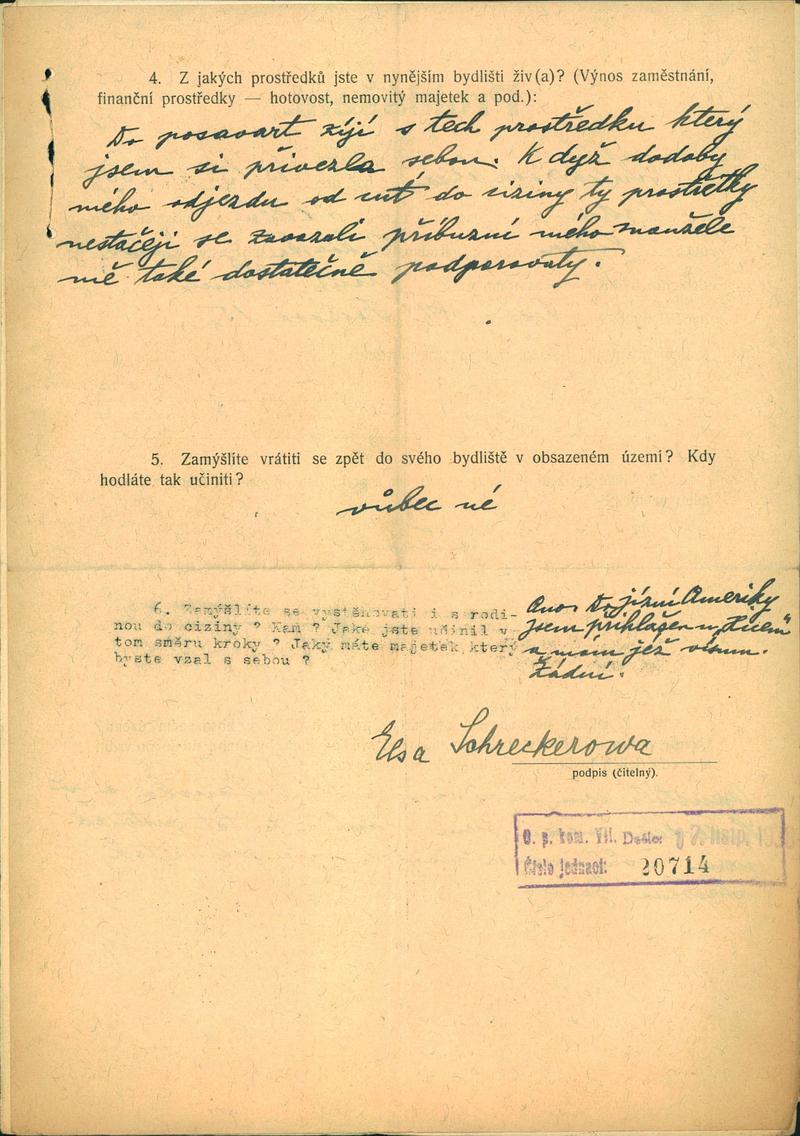 4. Z jakých prostředků jste v nynějším bydlišti živ(a)? (Výnos zaměstnání,
finanční prostředky — hotovost, nemovitý majetek a pod.):
Do posavart žíjí s tech prostředku který
jsem si přivezla sebou. Když dodoby
mého odjezdu od do ciziny ty prostřetky
nestačéji se zavazali příbuzní mého manžele
mě také dostatečně podporovaty.
5. Zamýšlíte vrátiti se zpět do svého bydliště v obsazeném území? Kdy
hodláte tak učiniti?
vůbec né
6. Zamýšlíte se vystěhovati i s rodi-
nou do ciziny ? Kam ? Jaké jste učinil v
tom směru kroky ? Jaký máte majetek který
byste vzal s sebou ?
Ano. Do jižní Ameriky
jsem přihlašen u „Hicem"
a mám jež vísum.
Žádní.
Elsa Schreckerowa
podpis (čitelný).
O. p. kom. VII. Došlo: 17. listp. 193
Číslo jednací: 20714